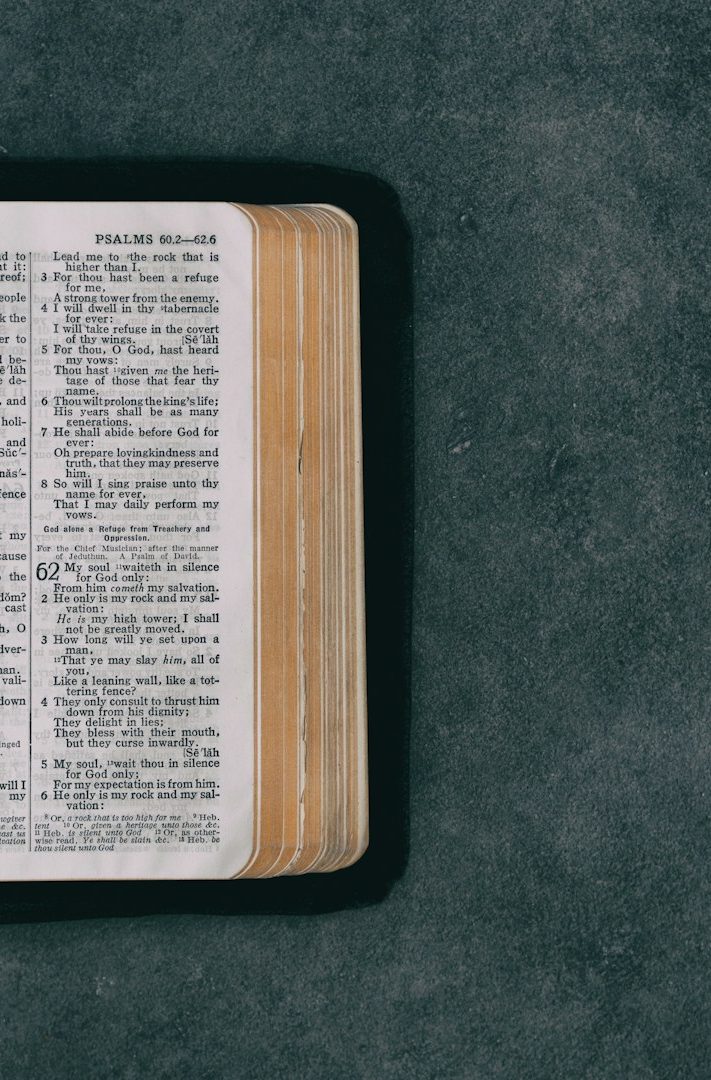 PSALMS 60.2—62.6
d to
t it:
reof;
eople
k the
er to
d be-
ē'lăh
e de-
, and
holi-
and
Sŭc'-
năs'-
fence
t my
cause
the
dŏm?
cast
h, O
dver-
nan.
vali-
down
nged
will I
my
Lead me to the rock that is
higher than I.
3 For thou hast been a refuge
for me,
A strong tower from the enemy.
4 I will dwell in thy ⁹tabernacle
for ever:
I will take refuge in the covert
of thy wings. [Sē'lăh
5 For thou, O God, hast heard
my vows:
Thou hast ¹⁰given me the heri-
tage of those that fear thy
name.
6 Thou wilt prolong the king's life;
His years shall be as many
generations.
7 He shall abide before God for
ever:
Oh prepare lovingkindness and
truth, that they may preserve
him.
8 So will I sing praise unto thy
name for ever,
That I may daily perform my
vows.
God alone a Refuge from Treachery and
Oppression.
For the Chief Musician; after the manner
of Jeduthun. A Psalm of David.
62 My soul ¹¹waiteth in silence
for God only:
From him cometh my salvation.
2 He only is my rock and my sal-
vation:
He is my high tower; I shall
not be greatly moved.
3 How long will ye set upon a
man,
¹²That ye may slay him, all of
you,
Like a leaning wall, like a tot-
tering fence?
4 They only consult to thrust him
down from his dignity;
They delight in lies;
They bless with their mouth,
but they curse inwardly.
[Sē'lăh
5 My soul, ¹³wait thou in silence
for God only;
For my expectation is from him.
6 He only is my rock and my sal-
vation:
⁸ Or, a rock that is too high for me ⁹ Heb.
tent ¹⁰ Or, given a heritage unto those &c.
¹¹ Heb. is silent unto God ¹² Or, as other-
wise read, Ye shall be slain &c. ¹³ Heb. be
thou silent unto God